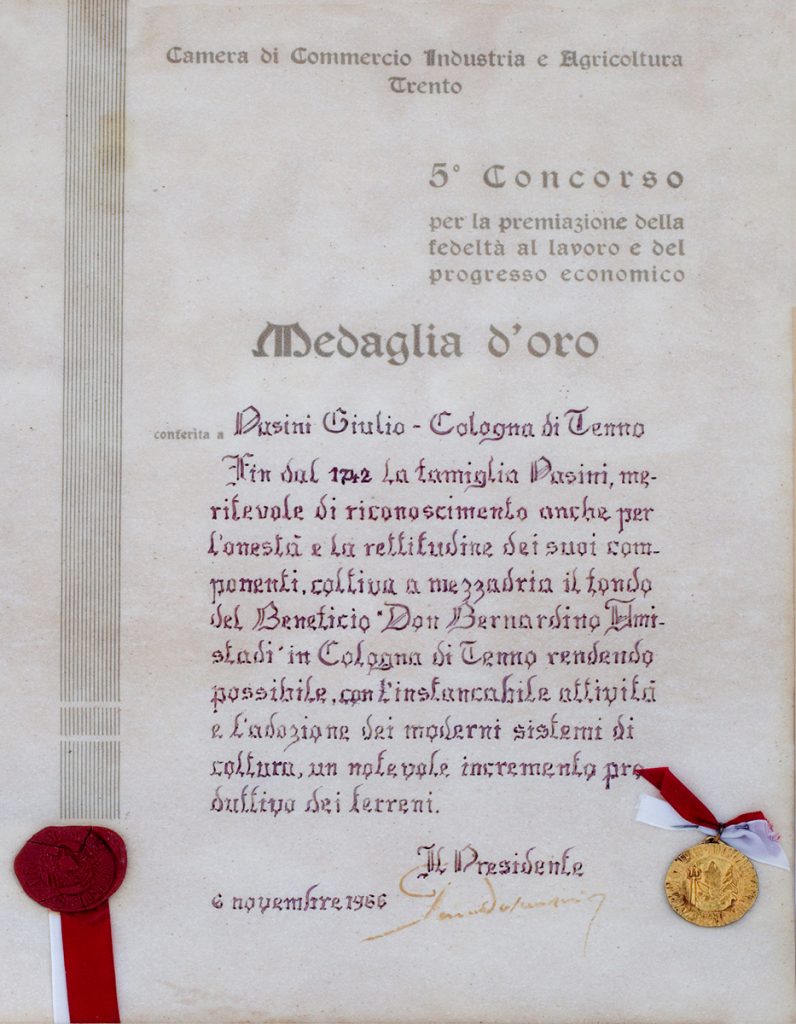 Camera di Commercio Industria e Agricoltura
Trento
5° Concorso
per la premiazione della
fedeltà al lavoro e del
progresso economico
Medaglia d'oro
conferita a Pasini Giulio - Cologna di Tenno
Fin dal 1742 la famiglia Pasini, me-
ritevole di riconoscimento anche per
l'onestà e la rettitudine dei suoi com-
ponenti, coltiva a mezzadria il fondo
del Beneficio "Don Bernardino Ami-
stadi" in Cologna di Tenno rendendo
possibile, con l'instancabile attività
e l'adozione dei moderni sistemi di
coltura, un notevole incremento pro
duttivo dei terreni.
Il Presidente
6 novembre 1966